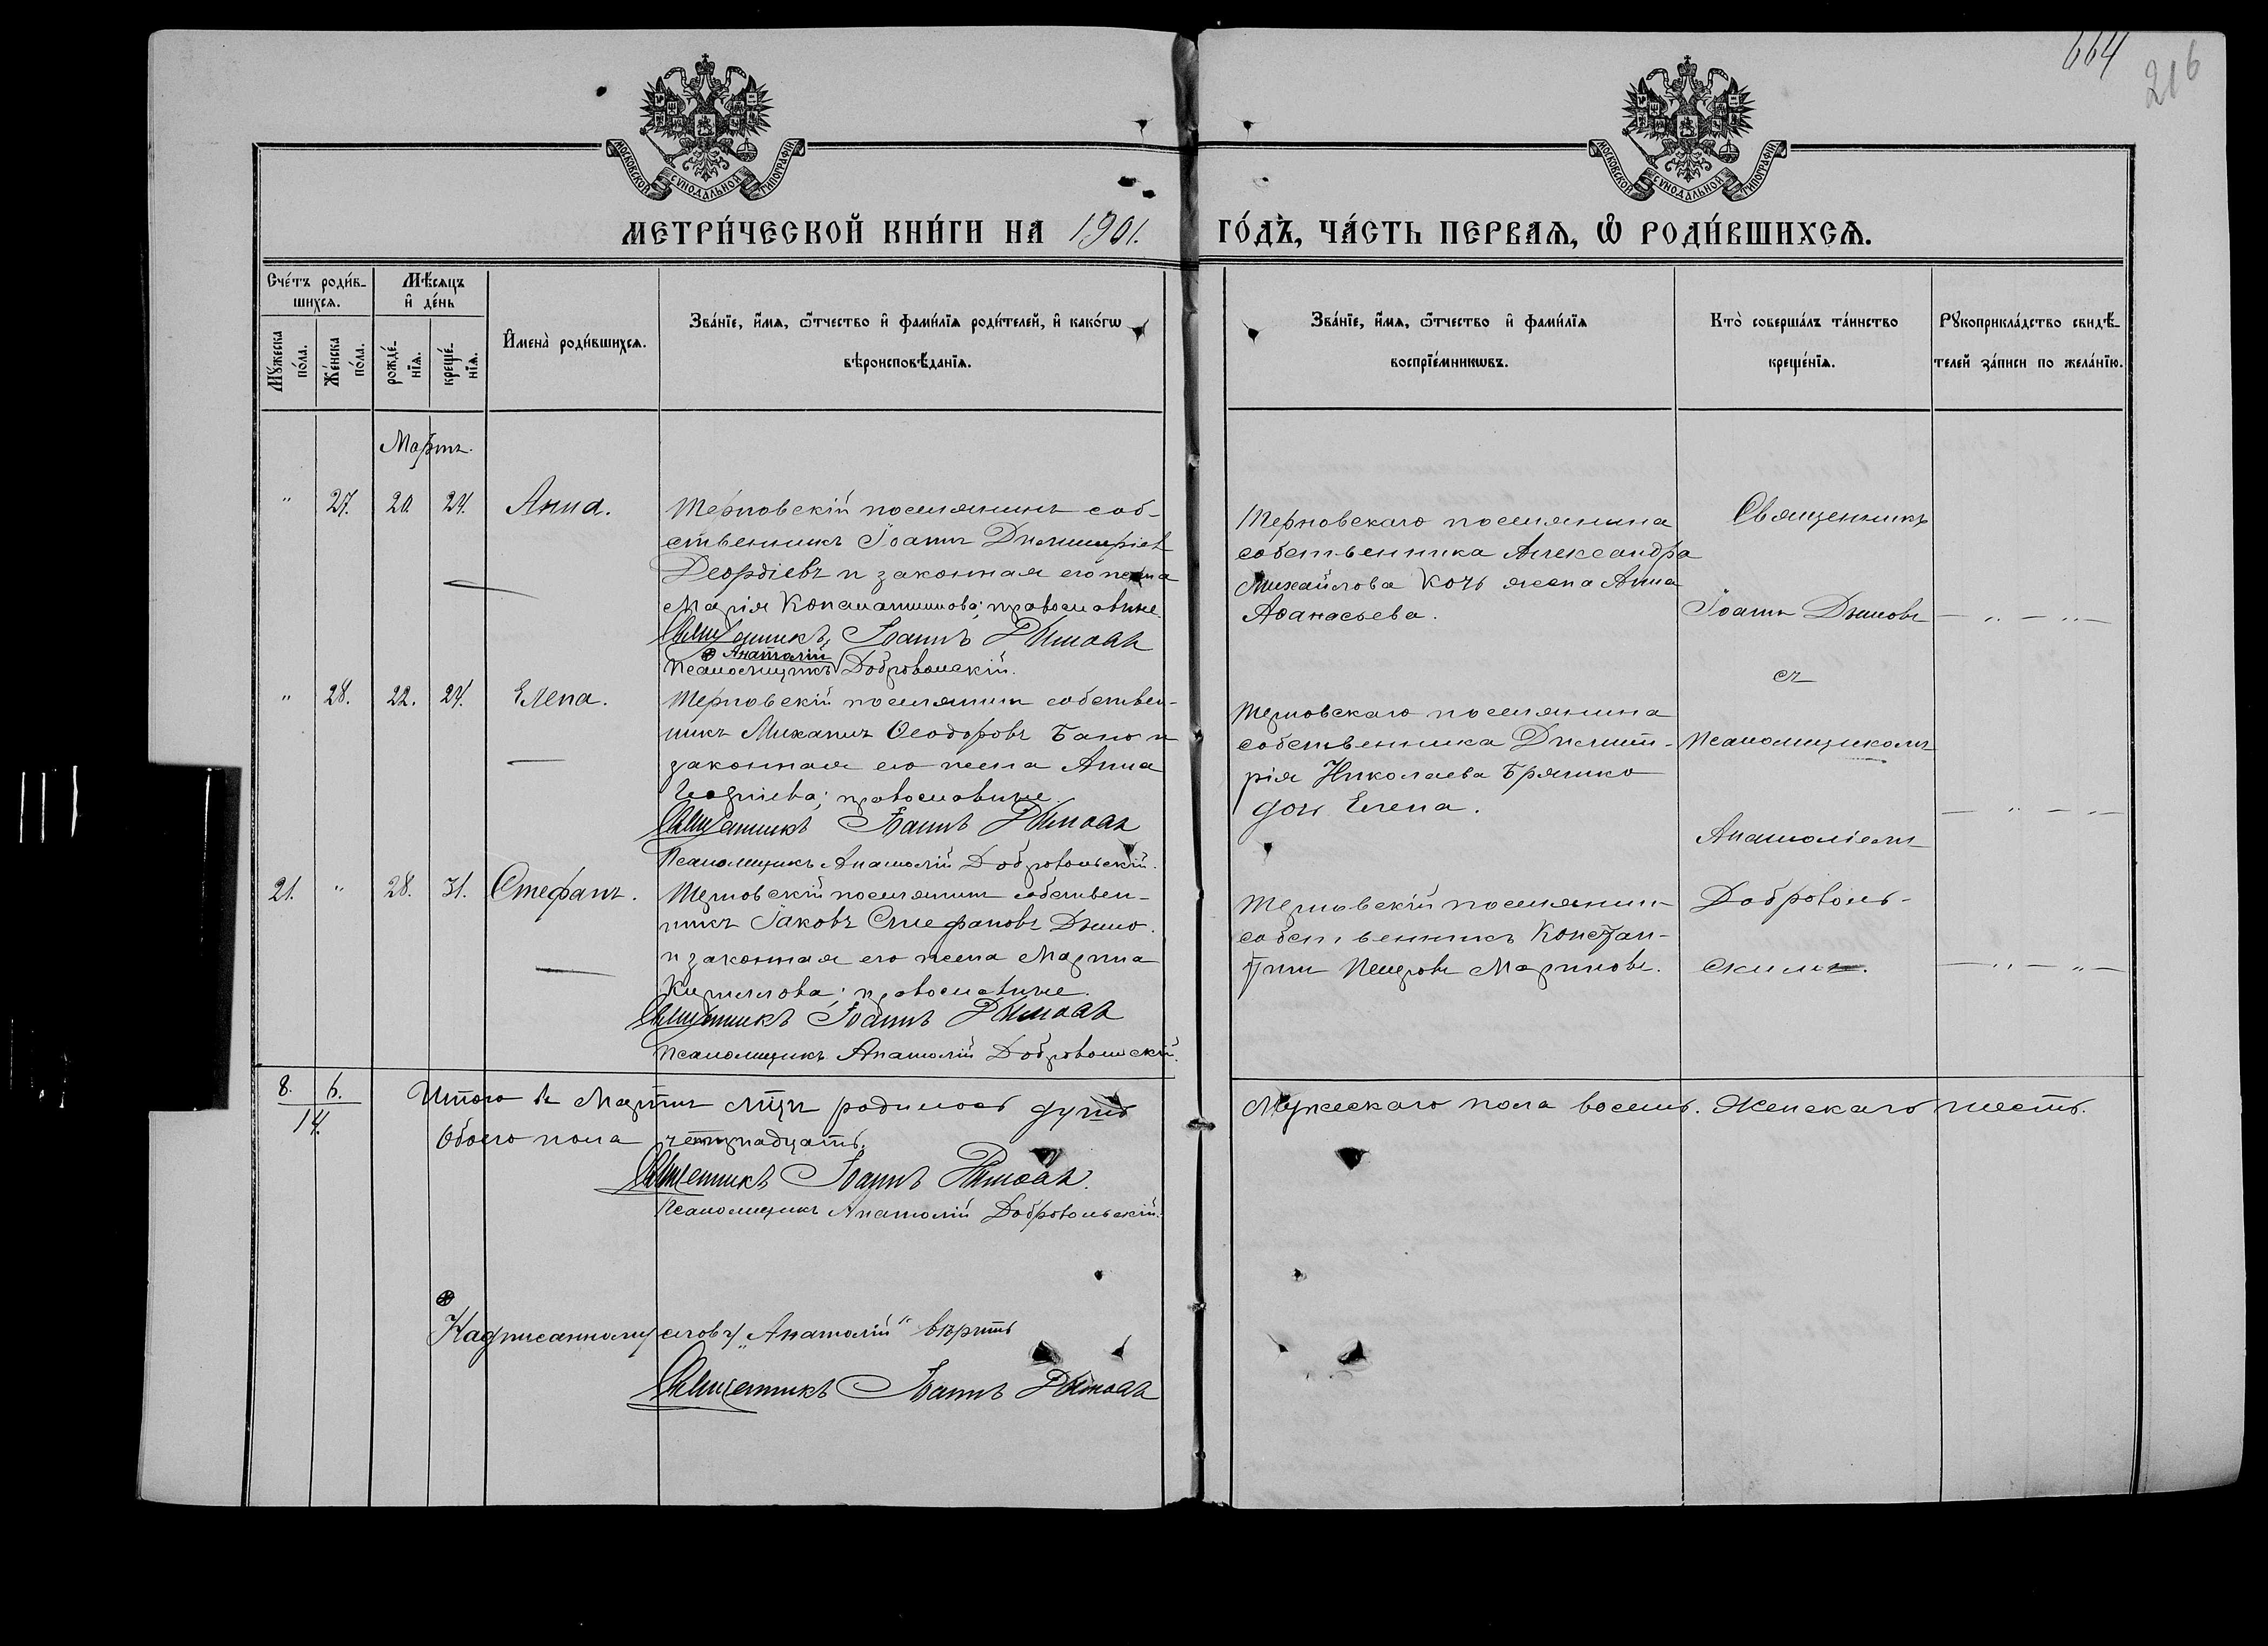 664
216
МОСКОВСКОЙ СУНОДАЛЬНОЙ ТИПОГРАФІИ
МОСКОВСКОЙ СУНОДАЛЬНОЙ ТИПОГРАФІИ
МЕТРИ́ЧЕСКОЙ КНИ́ГИ НА 1901.
ГО́ДЪ, ЧА́СТЬ ПЕРВАѦ, Ѡ РОДИ́ВШИХСѦ.
Сче́тъ роди́в-
шихсѧ.
Мѣ́сяцъ
и҆ де́нь
Мꙋ́жеска
по́ла.
Же́нска
по́ла.
рожде́-
нїѧ.
креще́-
нїѧ.
И҆мена̀ роди́вшихсѧ.
Зва́нїе, и҆́мѧ, ѻ҆́тчество и҆ фами́лїѧ роди́телей, и҆ како́гѡ
вѣроисповѣ́данїѧ.
Зва́нїе, и҆́мѧ, ѻ҆́тчество и҆ фами́лїѧ
воспрїе́мникѡвъ.
Кто̀ соверша́лъ та́инство
креще́нїѧ.
Рꙋкоприкла́дство свидѣ́-
телей за́писи по жела́нїю.
Мартъ.
" 27. 20. 24. Анна.
Терновскій поселянинъ соб-
ственникъ Іоаннъ Димитріевъ
Деордіевъ и законная его жена
Марія Константинова; православные.
Священникъ Іоаннъ Дымовъ
⊛ Анатолій
Псаломщикъ Добровольскій.
Терновскаго поселянина
собственника Александра
Михайлова Кочь жена Анна
Аѳанасьева.
Священникъ
Іоаннъ Дымовъ
съ
псаломщикомъ
Анатоліемъ
Доброволь-
скимъ.
— " — " —
" 28. 22. 24. Елена.
Терновскій поселянинъ собствен-
никъ Михаилъ Ѳеодоровъ Бано и
законная его жена Анна
Георгіева; православные
Священникъ Іоаннъ Дымовъ
Псаломщикъ Анатолій Добровольскій.
Терновскаго поселянина
собственника Димит-
рія Николаева Брянко
дочь Елена.
— " — " —
21. " 28. 31. Стефанъ.
Терновскій поселянинъ собствен-
никъ Іаковъ Стефановъ Дымо.
и законная его жена Марина
Кириллова; православные.
Священникъ Іоаннъ Дымовъ
Псаломщикъ Анатолій Добровольскій.
Терновскій поселянинъ
собственникъ Констан-
тинъ Петровъ Мариновъ.
— " — " —
8. 6.
14.
Итого въ Мартѣ мѣцѣ родилось душъ
Обоего пола четырнадцать.
Мужескаго пола восемь. Женскаго шесть.
Священникъ Іоаннъ Дымовъ.
Псаломщикъ Анатолій Добровольскій.
⊛
Надписанному слову „Анатолій" вѣрить
Священникъ Іоаннъ Дымовъ